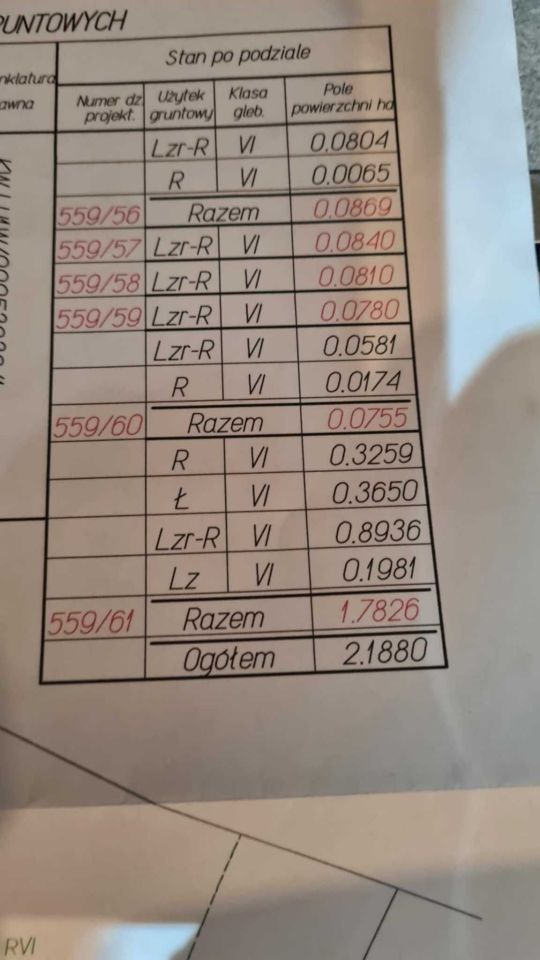 PUNTOWYCH
Stan po podziale
nklatura
awna
Numer dz. projekt. Użytek gruntowy Klasa gleb. Pole powierzchni ha
Lzr-R VI 0.0804
R VI 0.0065
559/56 Razem 0.0869
559/57 Lzr-R VI 0.0840
559/58 Lzr-R VI 0.0810
559/59 Lzr-R VI 0.0780
Lzr-R VI 0.0581
R VI 0.0174
559/60 Razem 0.0755
R VI 0.3259
Ł VI 0.3650
Lzr-R VI 0.8936
Lz VI 0.1981
559/61 Razem 1.7826
Ogółem 2.1880
RVI